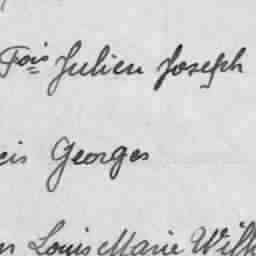 Fois Julien Joseph
cis Georges
Louis Marie Wilh